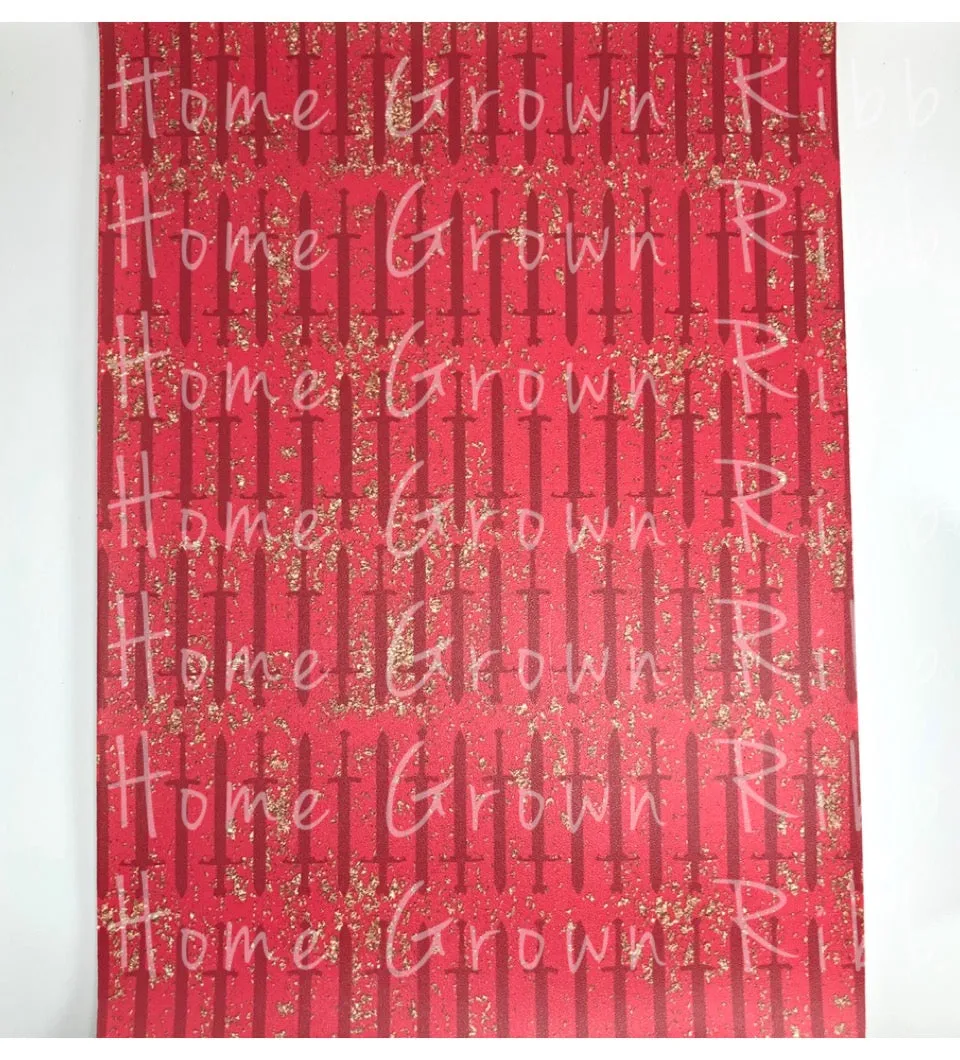 Home Grown Ribb
Home Grown Ribb
Home Grown Ribb
Home Grown Rib
Home Grown Ribb
Home Grown Rib
Home Grown Ribb